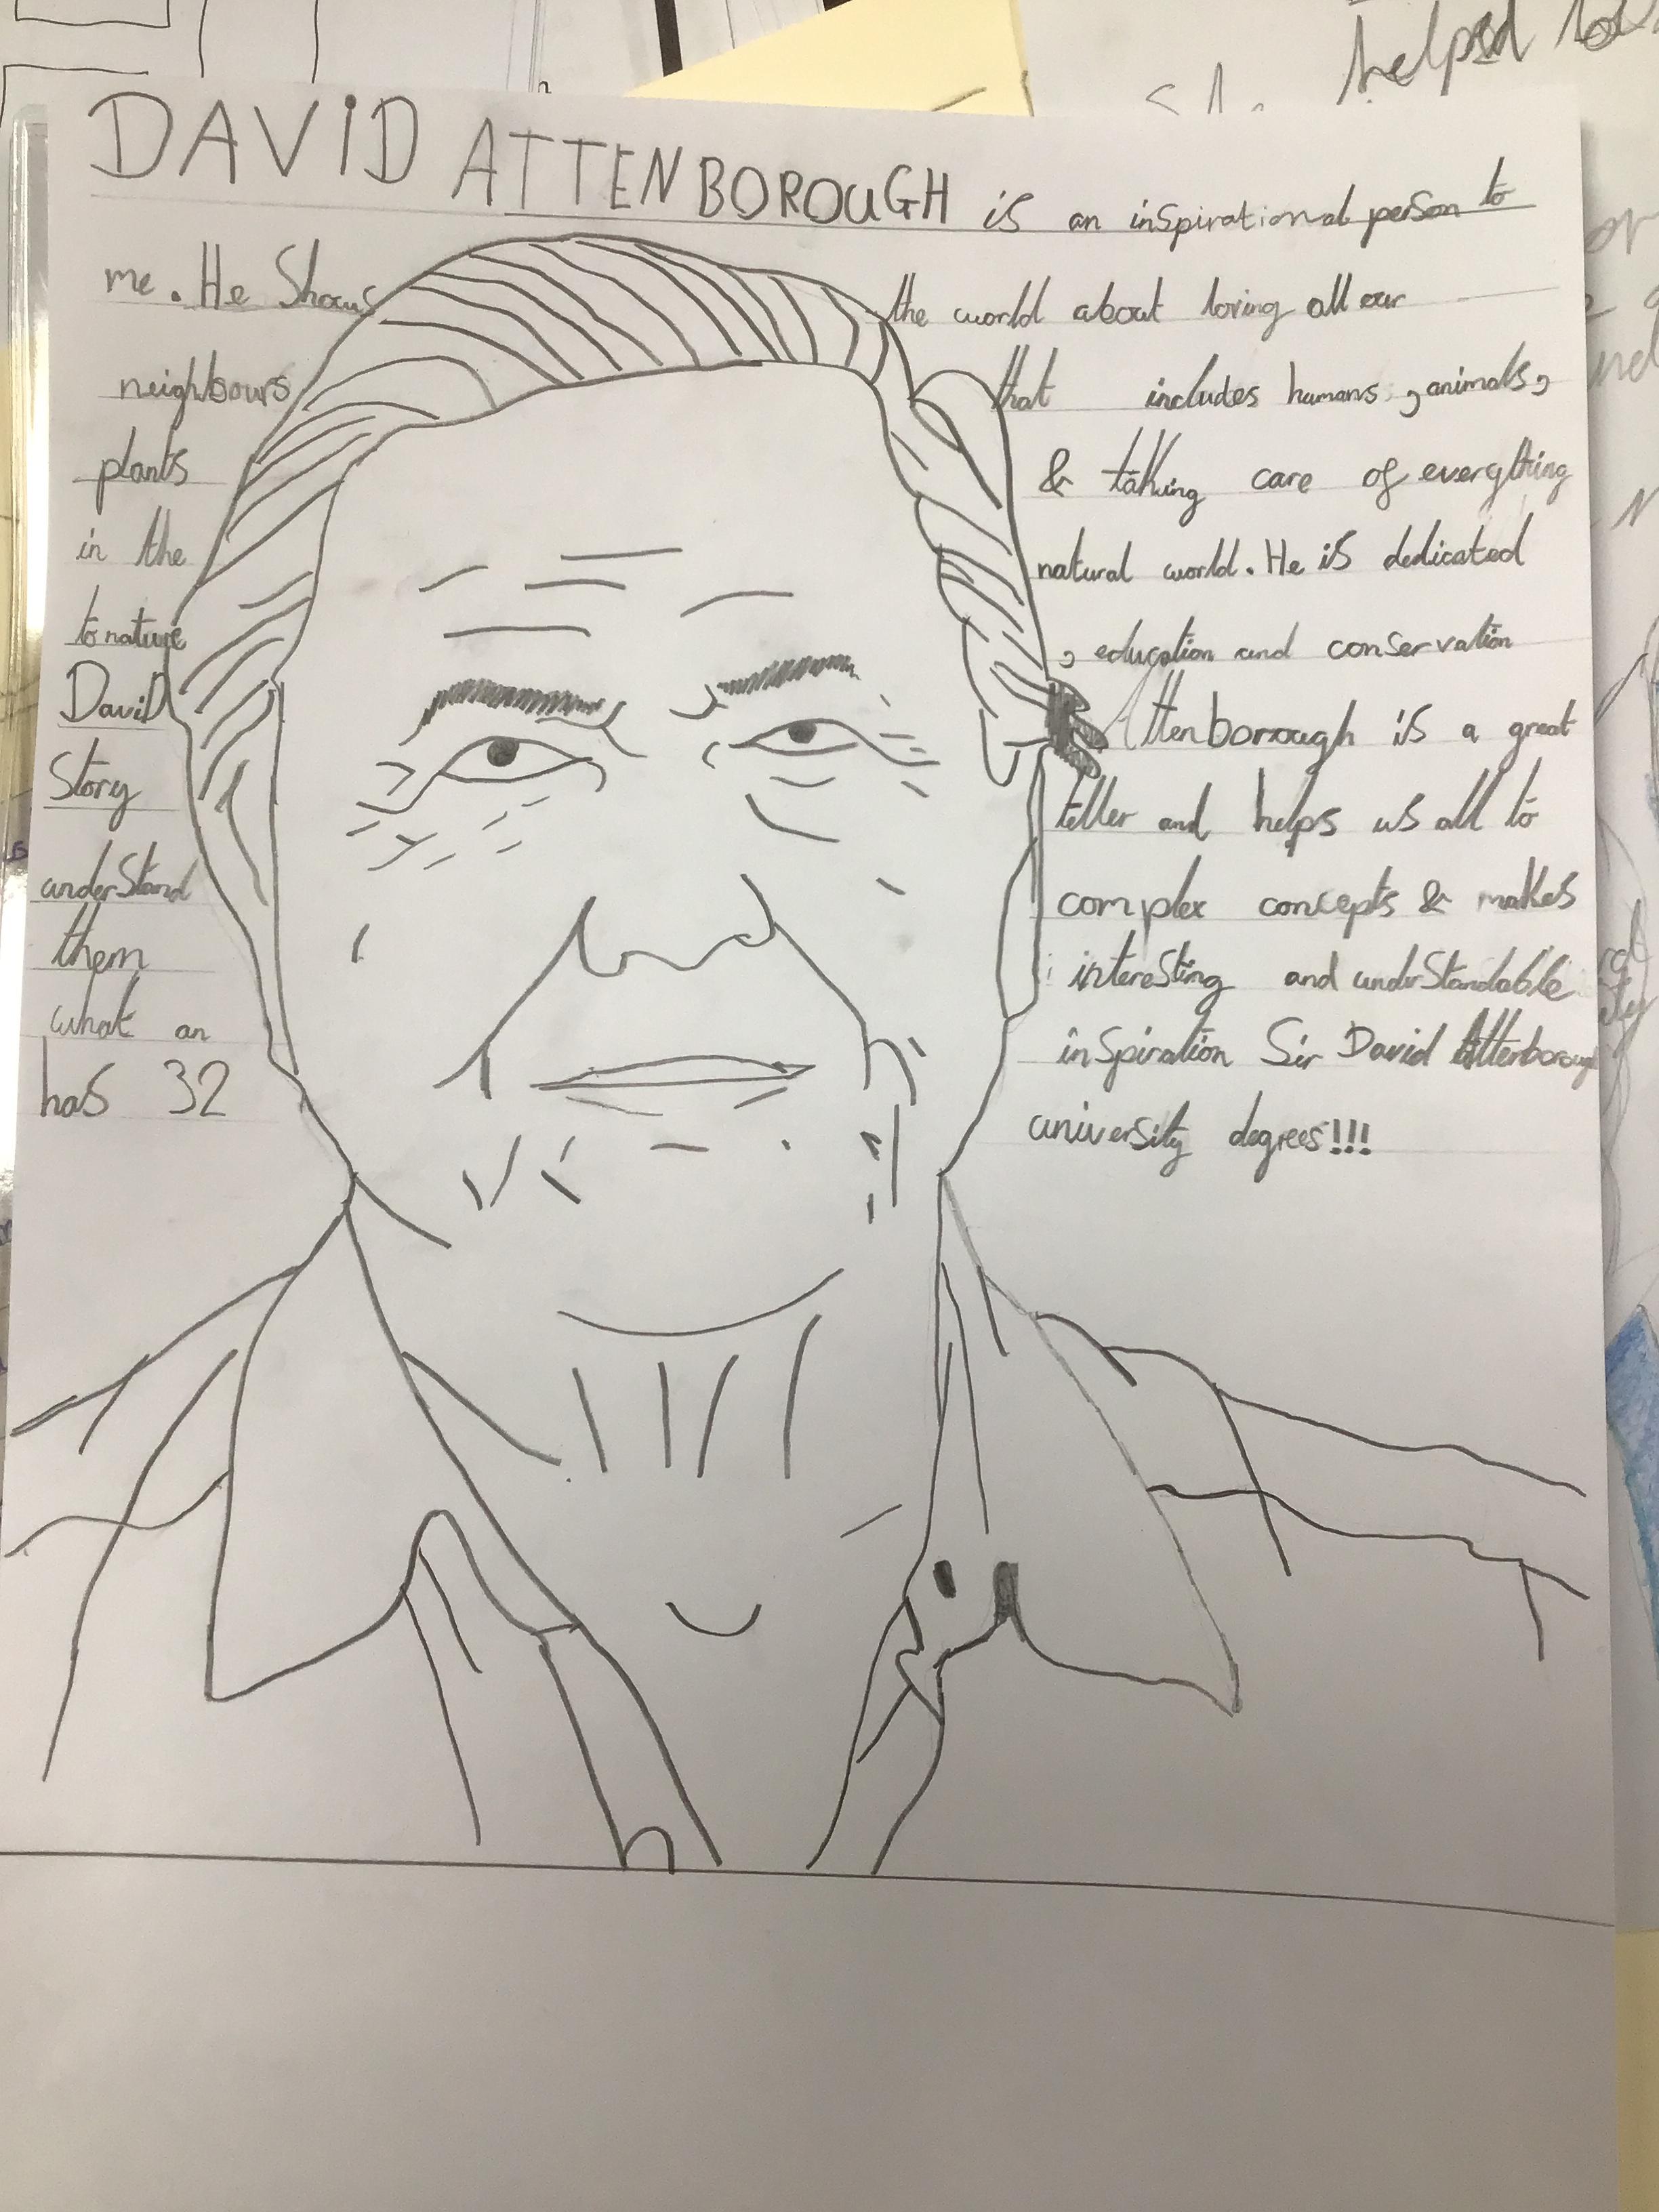 DAVID ATTENBOROUGH is an inspirational person to
me. He Shows the world about loving all our
neighbours that includes humans, animals,
plants & taking care of everything
in the natural world. He is dedicated
to nature, education and conservation
David Attenborough is a great
Story teller and helps us all to
understand complex concepts & makes
them interesting and understandable
what an inspiration Sir David Attenborough
has 32 university degrees!!!
helped